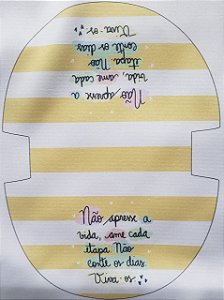 Não apresse a
vida, ame cada
etapa Não
conte os dias
Viva-os
Não apresse a
vida, ame cada
etapa Não
conte os dias
Viva-os